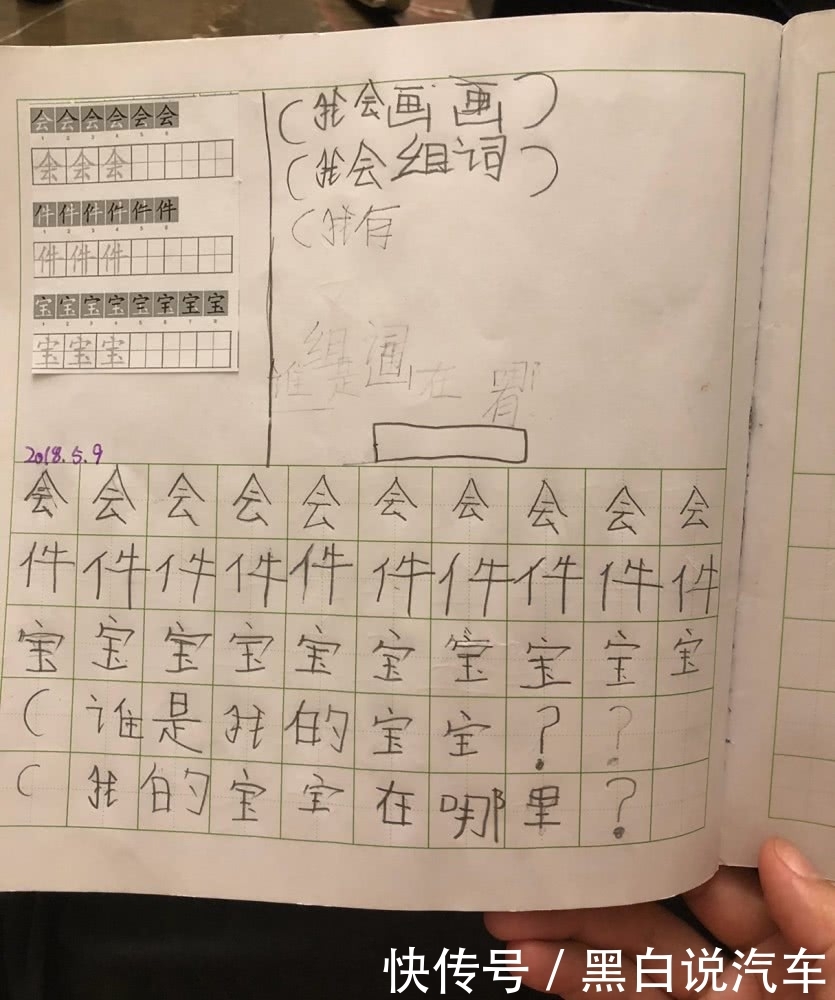 会会会会会会
1 2 3 4 5 6
会会会
件件件件件件
1 2 3 4 5 6
件件件
宝宝宝宝宝宝宝宝
1 2 3 4 5 6 7 8
宝宝宝
(我会画画)
(我会组词)
(我有
组词
谁是画在哪
2018.5.9
会会会会会会会会会会
件件件件件件件件件件
宝宝宝宝宝宝宝宝宝宝
(谁是我的宝宝??
(我的宝宝在哪里?
快传号/黑白说汽车